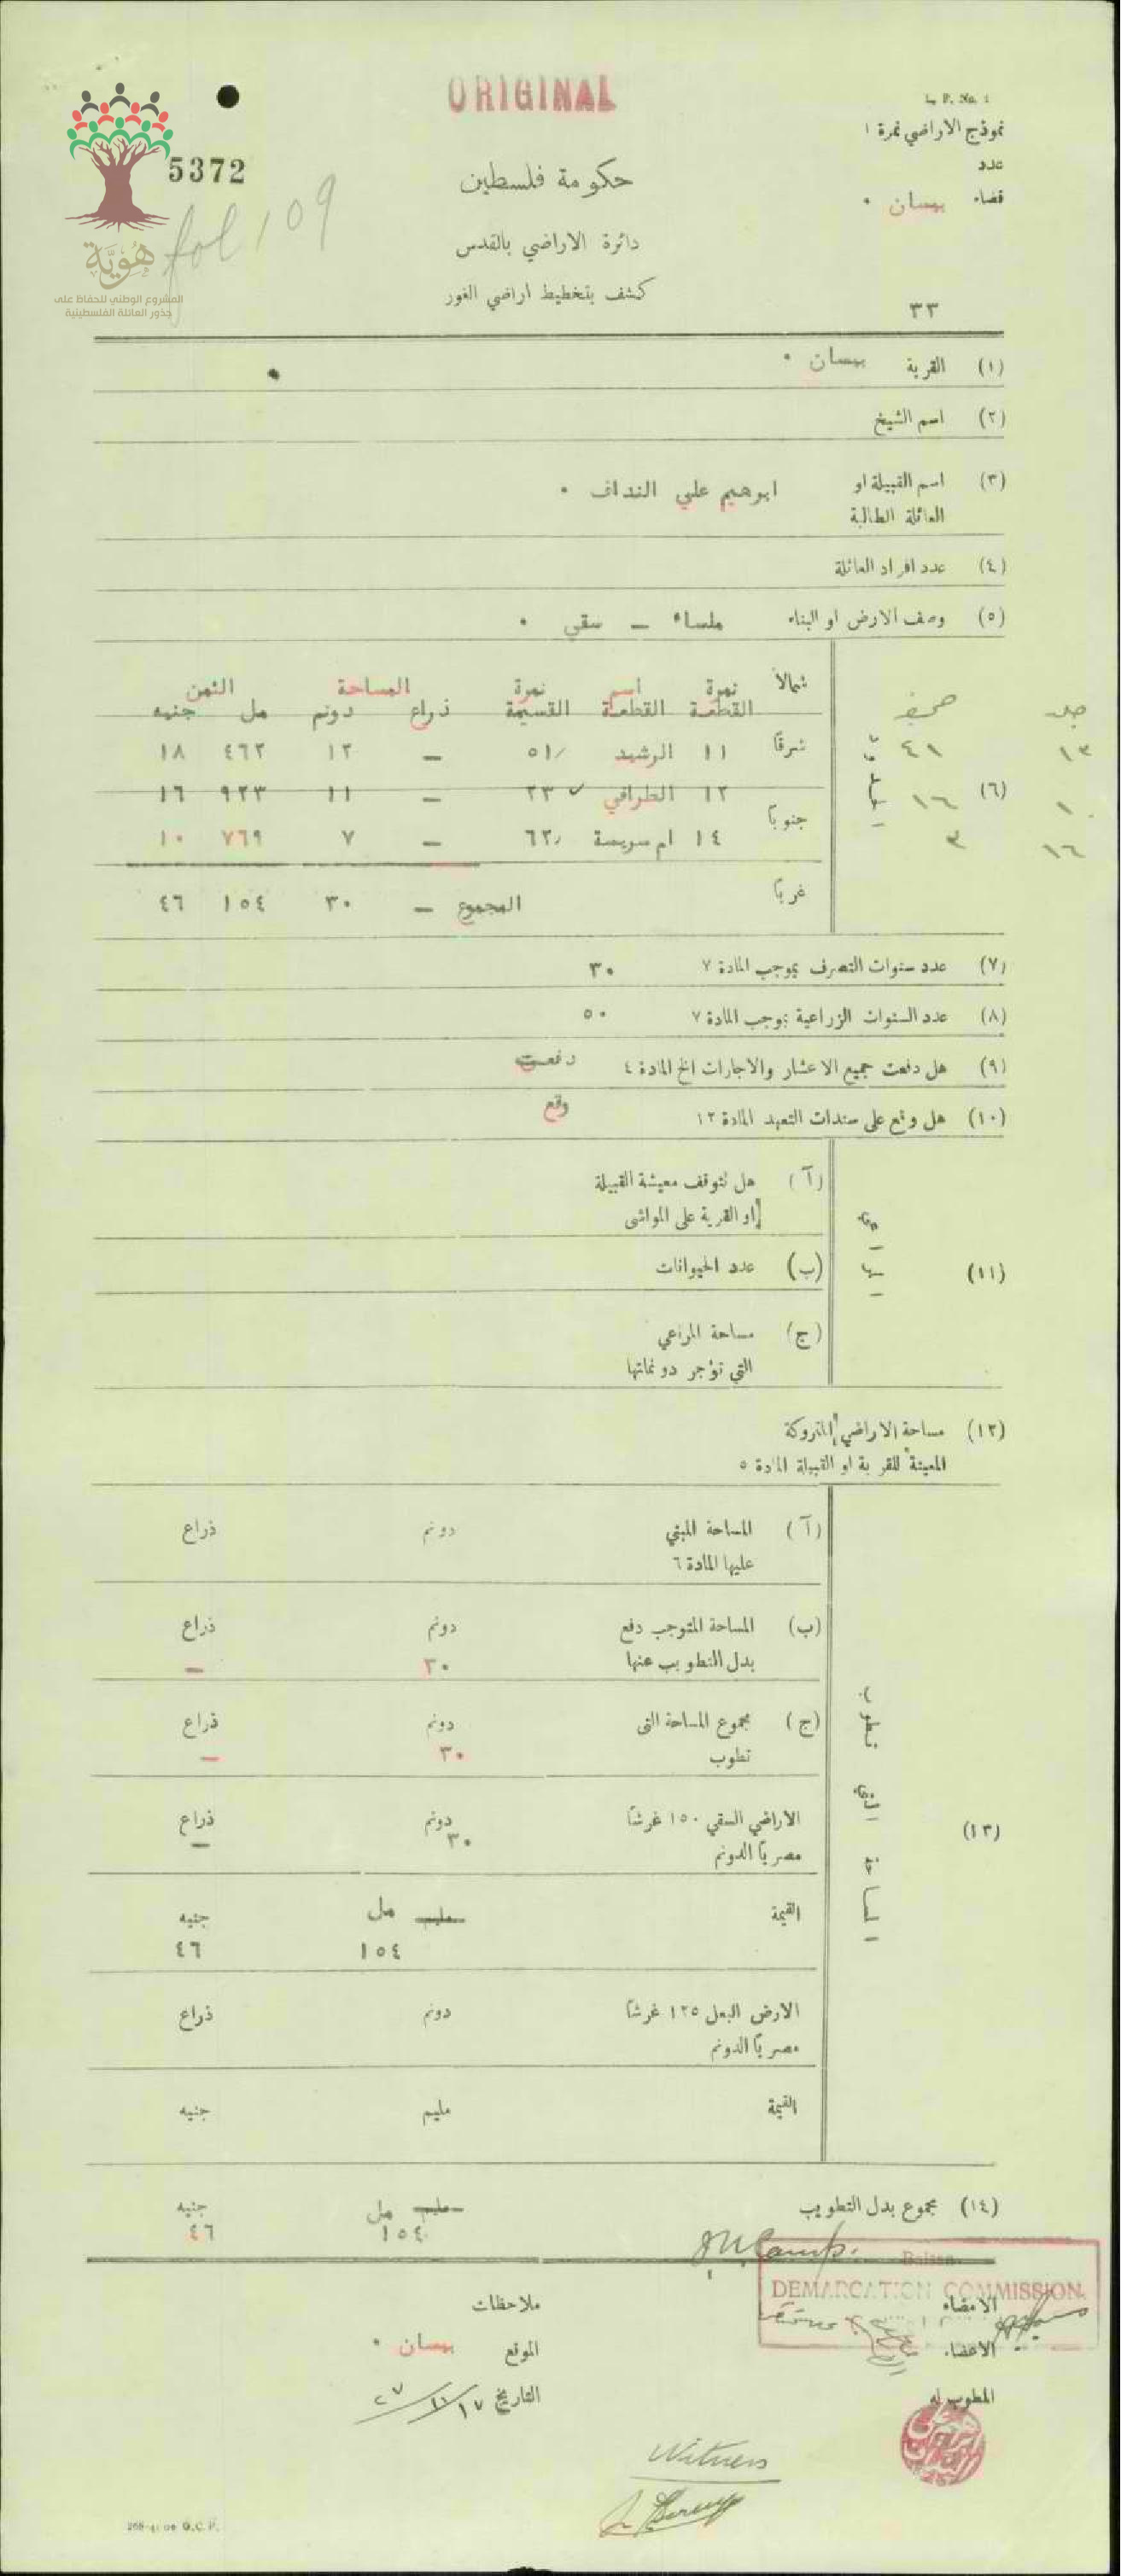 ORIGINAL
L. P. No. 1
نموذج الاراضي نمرة ١
عدد
قضاء بيسان ٠
5372
fol 109
هُوِيَّة
المشروع الوطني للحفاظ على
جذور العائلة الفلسطينية
حكومة فلسطين
دائرة الاراضي بالقدس
كشف بتخطيط اراضي الغور
٣٣
(١) القرية بيسان ٠
(٢) اسم الشيخ
(٣) اسم القبيلة او ابرهيم علي النداف ٠
العائلة الطالبة
(٤) عدد افراد العائلة
(٥) وصف الارض او البناء ملساء — سقي ٠
(٦)
شمالاً نمرة اسم نمرة المساحة الثمن
القطعة القطعة القسيمة ذراع دونم مل جنيه
جلد صحيفة
١٣ ٤١ شرقاً ١١ الرشيد ٥١/ — ١٢ ٤٦٢ ١٨
١ ١٦ ١٢ الطرافي ٢٣ — ١١ ٩٢٣ ١٦
١٦ ٣ جنوباً ١٤ ام سريسة ٦٢/ — ٧ ٧٦٩ ١٠
غرباً المجموع — ٣٠ ١٥٤ ٤٦
(٧) عدد سنوات التصرف بموجب المادة ٧ ٣٠
(٨) عدد السنوات الزراعية بموجب المادة ٧ ٥٠
(٩) هل دفعت جميع الاعشار والاجارات الخ المادة ٤ دفعت
(١٠) هل وقع على سندات التعهد المادة ١٢ وقع
(١١) المراعي
(آ) هل تتوقف معيشة القبيلة
او القرية على المواشي
(ب) عدد الحيوانات
(ج) مساحة المراعي
التي تؤجر دونماتها
(١٢) مساحة الاراضي المتروكة
المعينة للقرية او القبيلة المادة ٥
(١٣) المساحة التي تطوب
(آ) المساحة المبني دونم ذراع
عليها المادة ٦
(ب) المساحة المتوجب دفع دونم ذراع
بدل التطويب عنها ٣٠ —
(ج) مجموع المساحة التي دونم ذراع
تطوب ٣٠ —
الاراضي السقي ١٥٠ غرشاً دونم ذراع
مصرياً الدونم ٣٠ —
القيمة مليم مل جنيه
١٥٤ ٤٦
الارض البعل ١٢٥ غرشاً دونم ذراع
مصرياً الدونم
القيمة مليم جنيه
(١٤) مجموع بدل التطويب مليم مل جنيه
١٥٤ ٤٦
Beisan
DEMARCATION COMMISSION.
الامضاء
الاعضاء
المطوب له
ملاحظات
الموقع بيسان ٠
التاريخ ١٧/١١/٢٧
Witness
G.C.P.